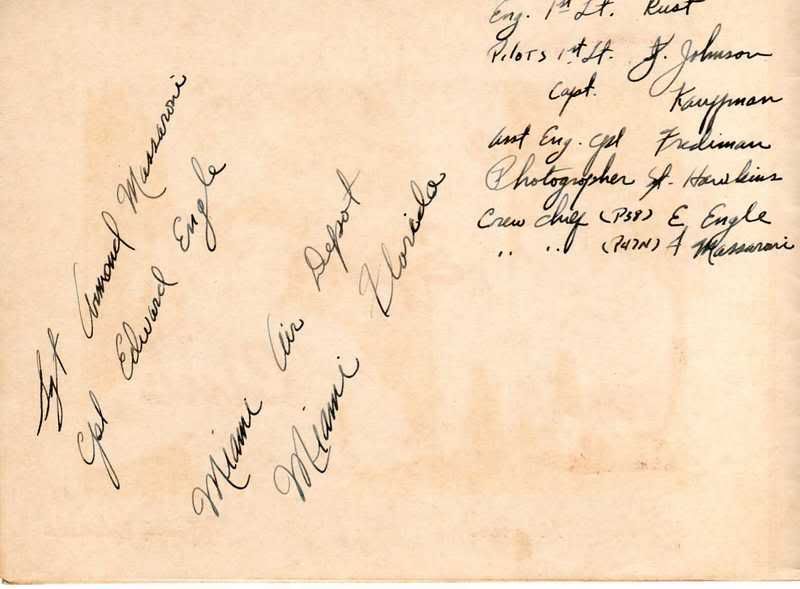 Eng. 1st Lt. Rust
Pilots 1st Lt. J. Johnson
Capt. Kauffman
Asst Eng. Cpl Frediman
Photographer St. Hawkins
Crew Chief (P38) E Engle
" " (P47N) A Massaroni
Sgt Armond Massaroni
Cpl Edward Engle
Miami Air Depot
Miami Florida